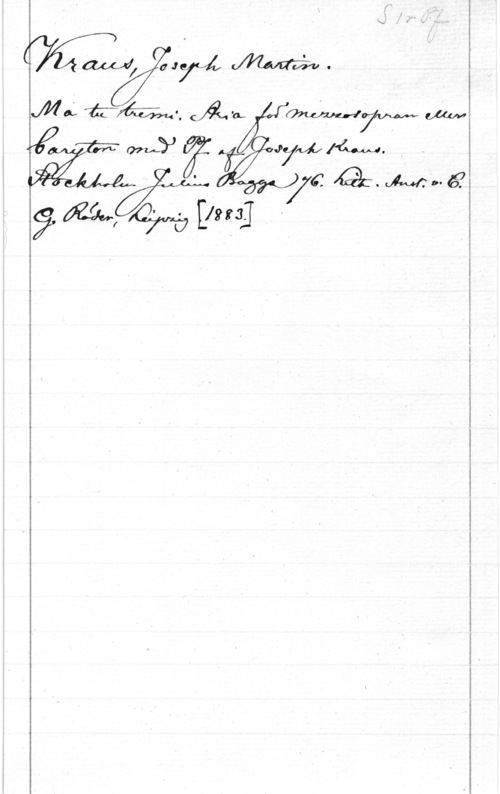 S 1 r Pf
Kraus, Joseph Martin.
Ma tu tremi. Aria för mezzosopran eller
baryton med Pf. af Joseph Kraus.
Stockholm Julius Bagge) 76. Lith. Anst. v. C.
G. Röder, Leipzig [1883.]